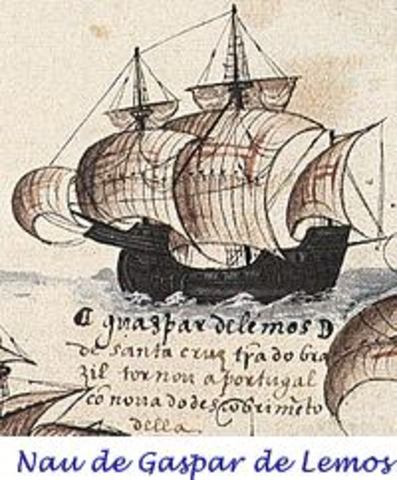 guaspar delemos D
de santa cruz trado bra
zil tornou a portugal
cõ noua do descobrimẽto
della
Nau de Gaspar de Lemos